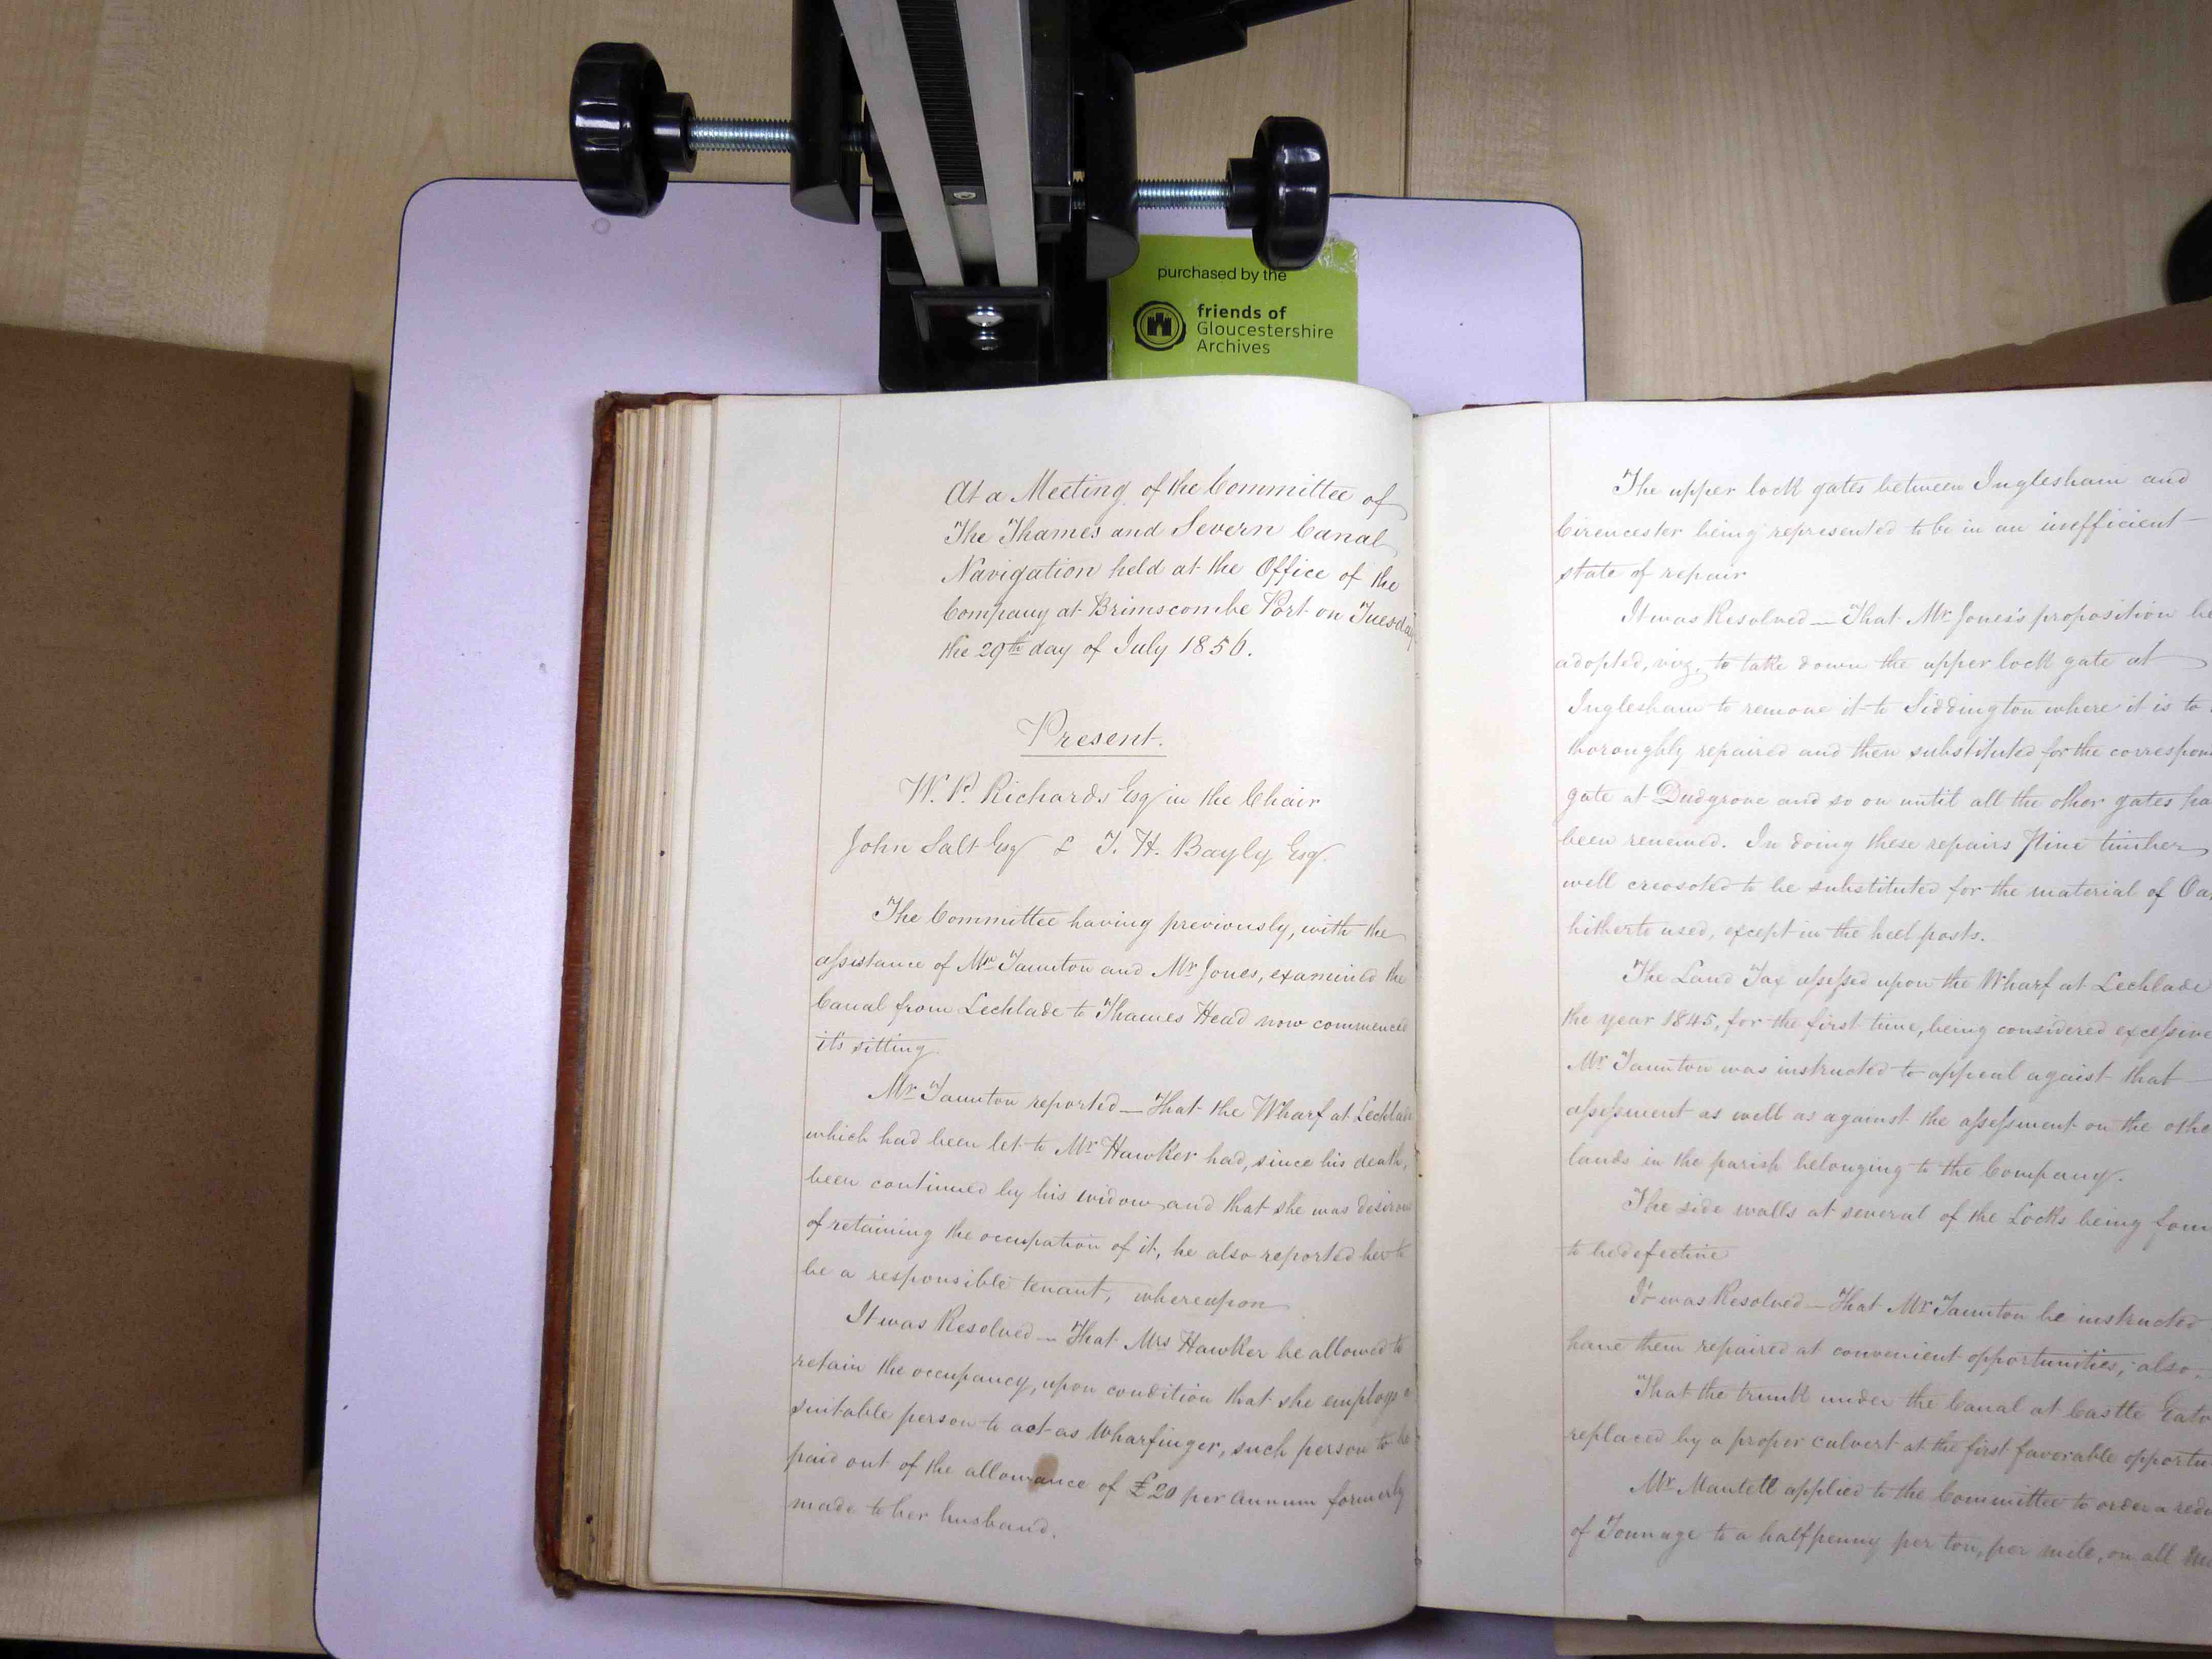 purchased by the
friends of
Gloucestershire
Archives
At a Meeting of the Committee of
The Thames and Severn Canal
Navigation held at the Office of the
Company at Brimscombe Port on Tuesday
the 29th day of July 1856.
Present.
W. P. Richards Esq in the Chair
John Salt Esq & T. H. Bayly Esq.
The Committee having previously, with the
assistance of Mr Taunton and Mr Jones, examined the
Canal from Lechlade to Thames Head now commenced
its sitting.
Mr Taunton reported — That the Wharf at Lechlade
which had been let to Mr Hawker had, since his death,
been continued by his widow and that she was desirous
of retaining the occupation of it, he also reported her to
be a responsible tenant, whereupon
It was Resolved — That Mrs Hawker be allowed to
retain the occupancy, upon condition that she employ a
suitable person to act as Wharfinger, such person to be
paid out of the allowance of £20 per annum formerly
made to her husband.
The upper lock gates between Inglesham and
Cirencester being represented to be in an inefficient
state of repair
It was Resolved — That Mr Jones's proposition be
adopted, viz, to take down the upper lock gate at
Inglesham to remove it to Siddington where it is to
thoroughly repaired and then substituted for the correspon
gate at Dudgrove and so on until all the other gates ha
been renewed. In doing these repairs Pine timber
well creosoted to be substituted for the material of Oa
hitherto used, except in the heel posts.
The Land Tax assessed upon the Wharf at Lechlade
the year 1845, for the first time, being considered excessive
Mr Taunton was instructed to appeal agaist that
assessment as well as against the assessment on the othe
lands in the parish belonging to the Company.
The side walls at several of the Locks being foun
to be defective
It was Resolved — That Mr Taunton be instructed
have them repaired at convenient opportunities; also,
That the trunk under the Canal at Castle Eato
replaced by a proper culvert at the first favorable opportu
Mr Mantell applied to the Committee to order a redu
of Tonnage to a halfpenny per ton, per mile, on all